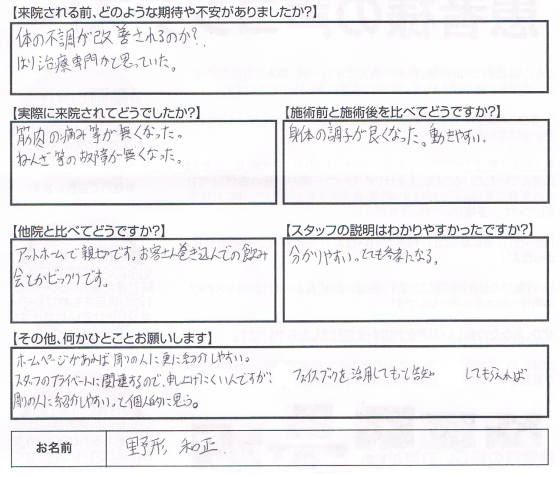 【来院される前、どのような期待や不安がありましたか?】
体の不調が改善されるのか?
はり治療専門かと思っていた。
【実際に来院されてどうでしたか?】
筋肉の痛み等が無くなった。
ねんざ等の故障が無くなった。
【施術前と施術後を比べてどうですか?】
身体の調子が良くなった。動きやすい。
【他院と比べてどうですか?】
アットホームで親切です。お客さん巻き込んでの飲み
会とかビックリです。
【スタッフの説明はわかりやすかったですか?】
分かりやすい。とても参考になる。
【その他、何かひとことお願いします】
ホームページがあれば周りの人に更に紹介しやすい。
スタッフのプライベートに関連するので、申し上げにくいんですが、 フェイスブックを活用してもっと告知 してもらえれば
周りの人に紹介しやすい。と個人的に思う。
お名前 野形 和正